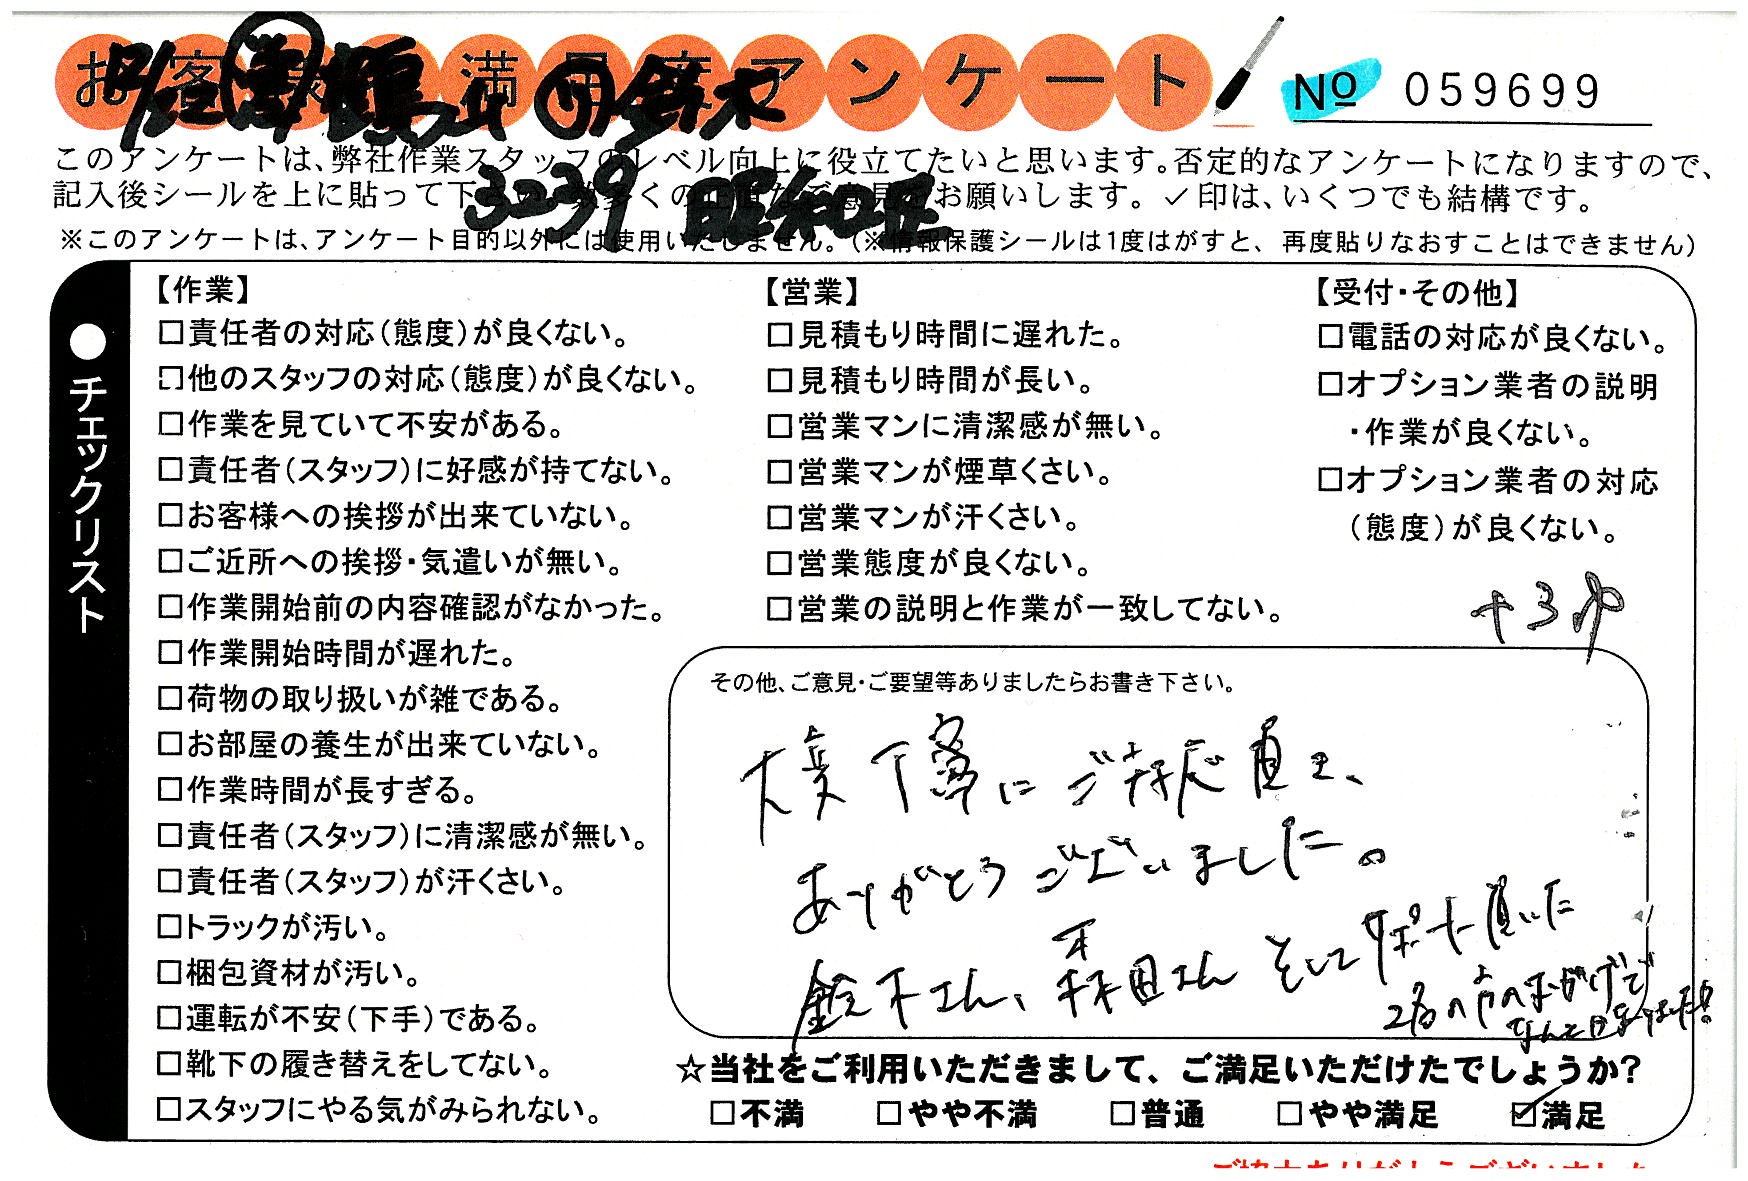 お客様満足度アンケート
№ 059699
鈴木
3239 昭和区
このアンケートは、弊社作業スタッフのレベル向上に役立てたいと思います。否定的なアンケートになりますので、
記入後シールを上に貼って下さい。数多くの正直なご意見をお願いします。✓印は、いくつでも結構です。
※このアンケートは、アンケート目的以外には使用いたしません。(※情報保護シールは1度はがすと、再度貼りなおすことはできません)
●チェックリスト
【作業】
□責任者の対応(態度)が良くない。
□他のスタッフの対応(態度)が良くない。
□作業を見ていて不安がある。
□責任者(スタッフ)に好感が持てない。
□お客様への挨拶が出来ていない。
□ご近所への挨拶・気遣いが無い。
□作業開始前の内容確認がなかった。
□作業開始時間が遅れた。
□荷物の取り扱いが雑である。
□お部屋の養生が出来ていない。
□作業時間が長すぎる。
□責任者(スタッフ)に清潔感が無い。
□責任者(スタッフ)が汗くさい。
□トラックが汚い。
□梱包資材が汚い。
□運転が不安(下手)である。
□靴下の履き替えをしてない。
□スタッフにやる気がみられない。
【営業】
□見積もり時間に遅れた。
□見積もり時間が長い。
□営業マンに清潔感が無い。
□営業マンが煙草くさい。
□営業マンが汗くさい。
□営業態度が良くない。
□営業の説明と作業が一致してない。
【受付・その他】
□電話の対応が良くない。
□オプション業者の説明
・作業が良くない。
□オプション業者の対応
(態度)が良くない。
+3
その他、ご意見・ご要望等ありましたらお書き下さい。
大変丁寧にご対応頂き、
ありがとうございました。
鈴木さん、森田さん そしてサポート頂いた
2名の方のおかげで
なんとかなりました!
☆当社をご利用いただきまして、ご満足いただけたでしょうか?
□不満 □やや不満 □普通 □やや満足 ☑満足
ご協力ありがとうございました